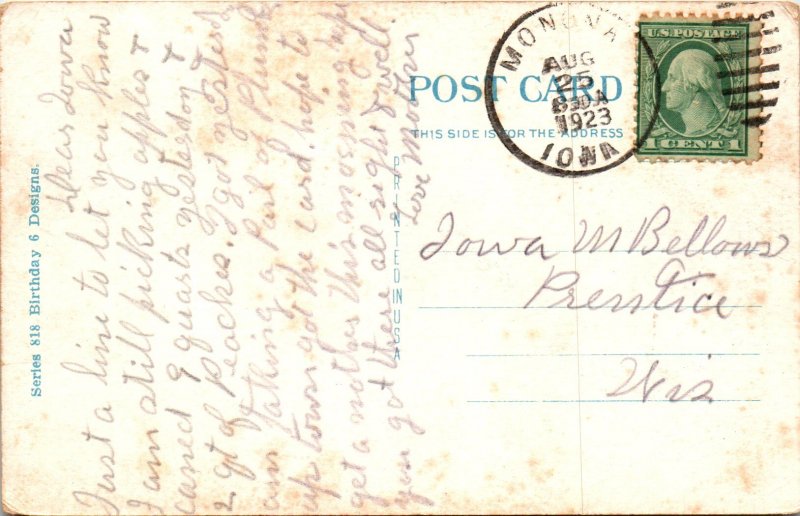 Series 818 Birthday 6 Designs.
Dear Iowa
Just a line to let you know
I am still picking apples &
caned 9 quarts yesterday &
2 qt of Peaches. I got yesterdy
am taking a Pail of Plums
up town got the card. hope to
get a nother this morning hope
you got there all right & well.
Love Mother
PRINTED IN USA
POST CARD
THIS SIDE IS FOR THE ADDRESS
MONONA
AUG
25
830A
1923
IOWA
U.S. POSTAGE
1 CENT 1
Iowa M Bellows
Prenstice
Wis